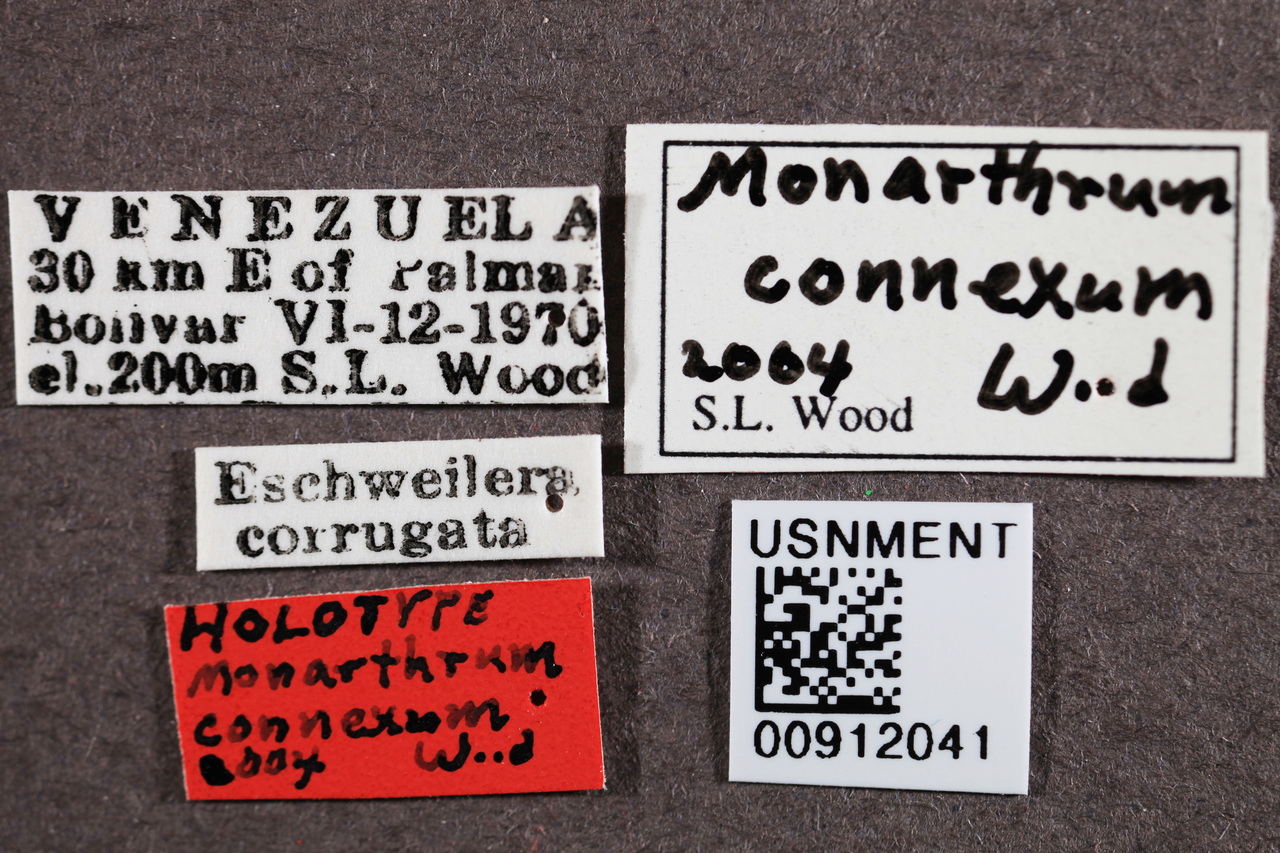 VENEZUELA
30 km E of Palmar
Bolivar VI-12-1970
el.200m S.L. Wood
Eschweilera
corrugata
HOLOTYPE
Monarthrum
connexum
2004 Wood
Monarthrum
connexum
2004 Wood
S.L. Wood
USNMENT
00912041